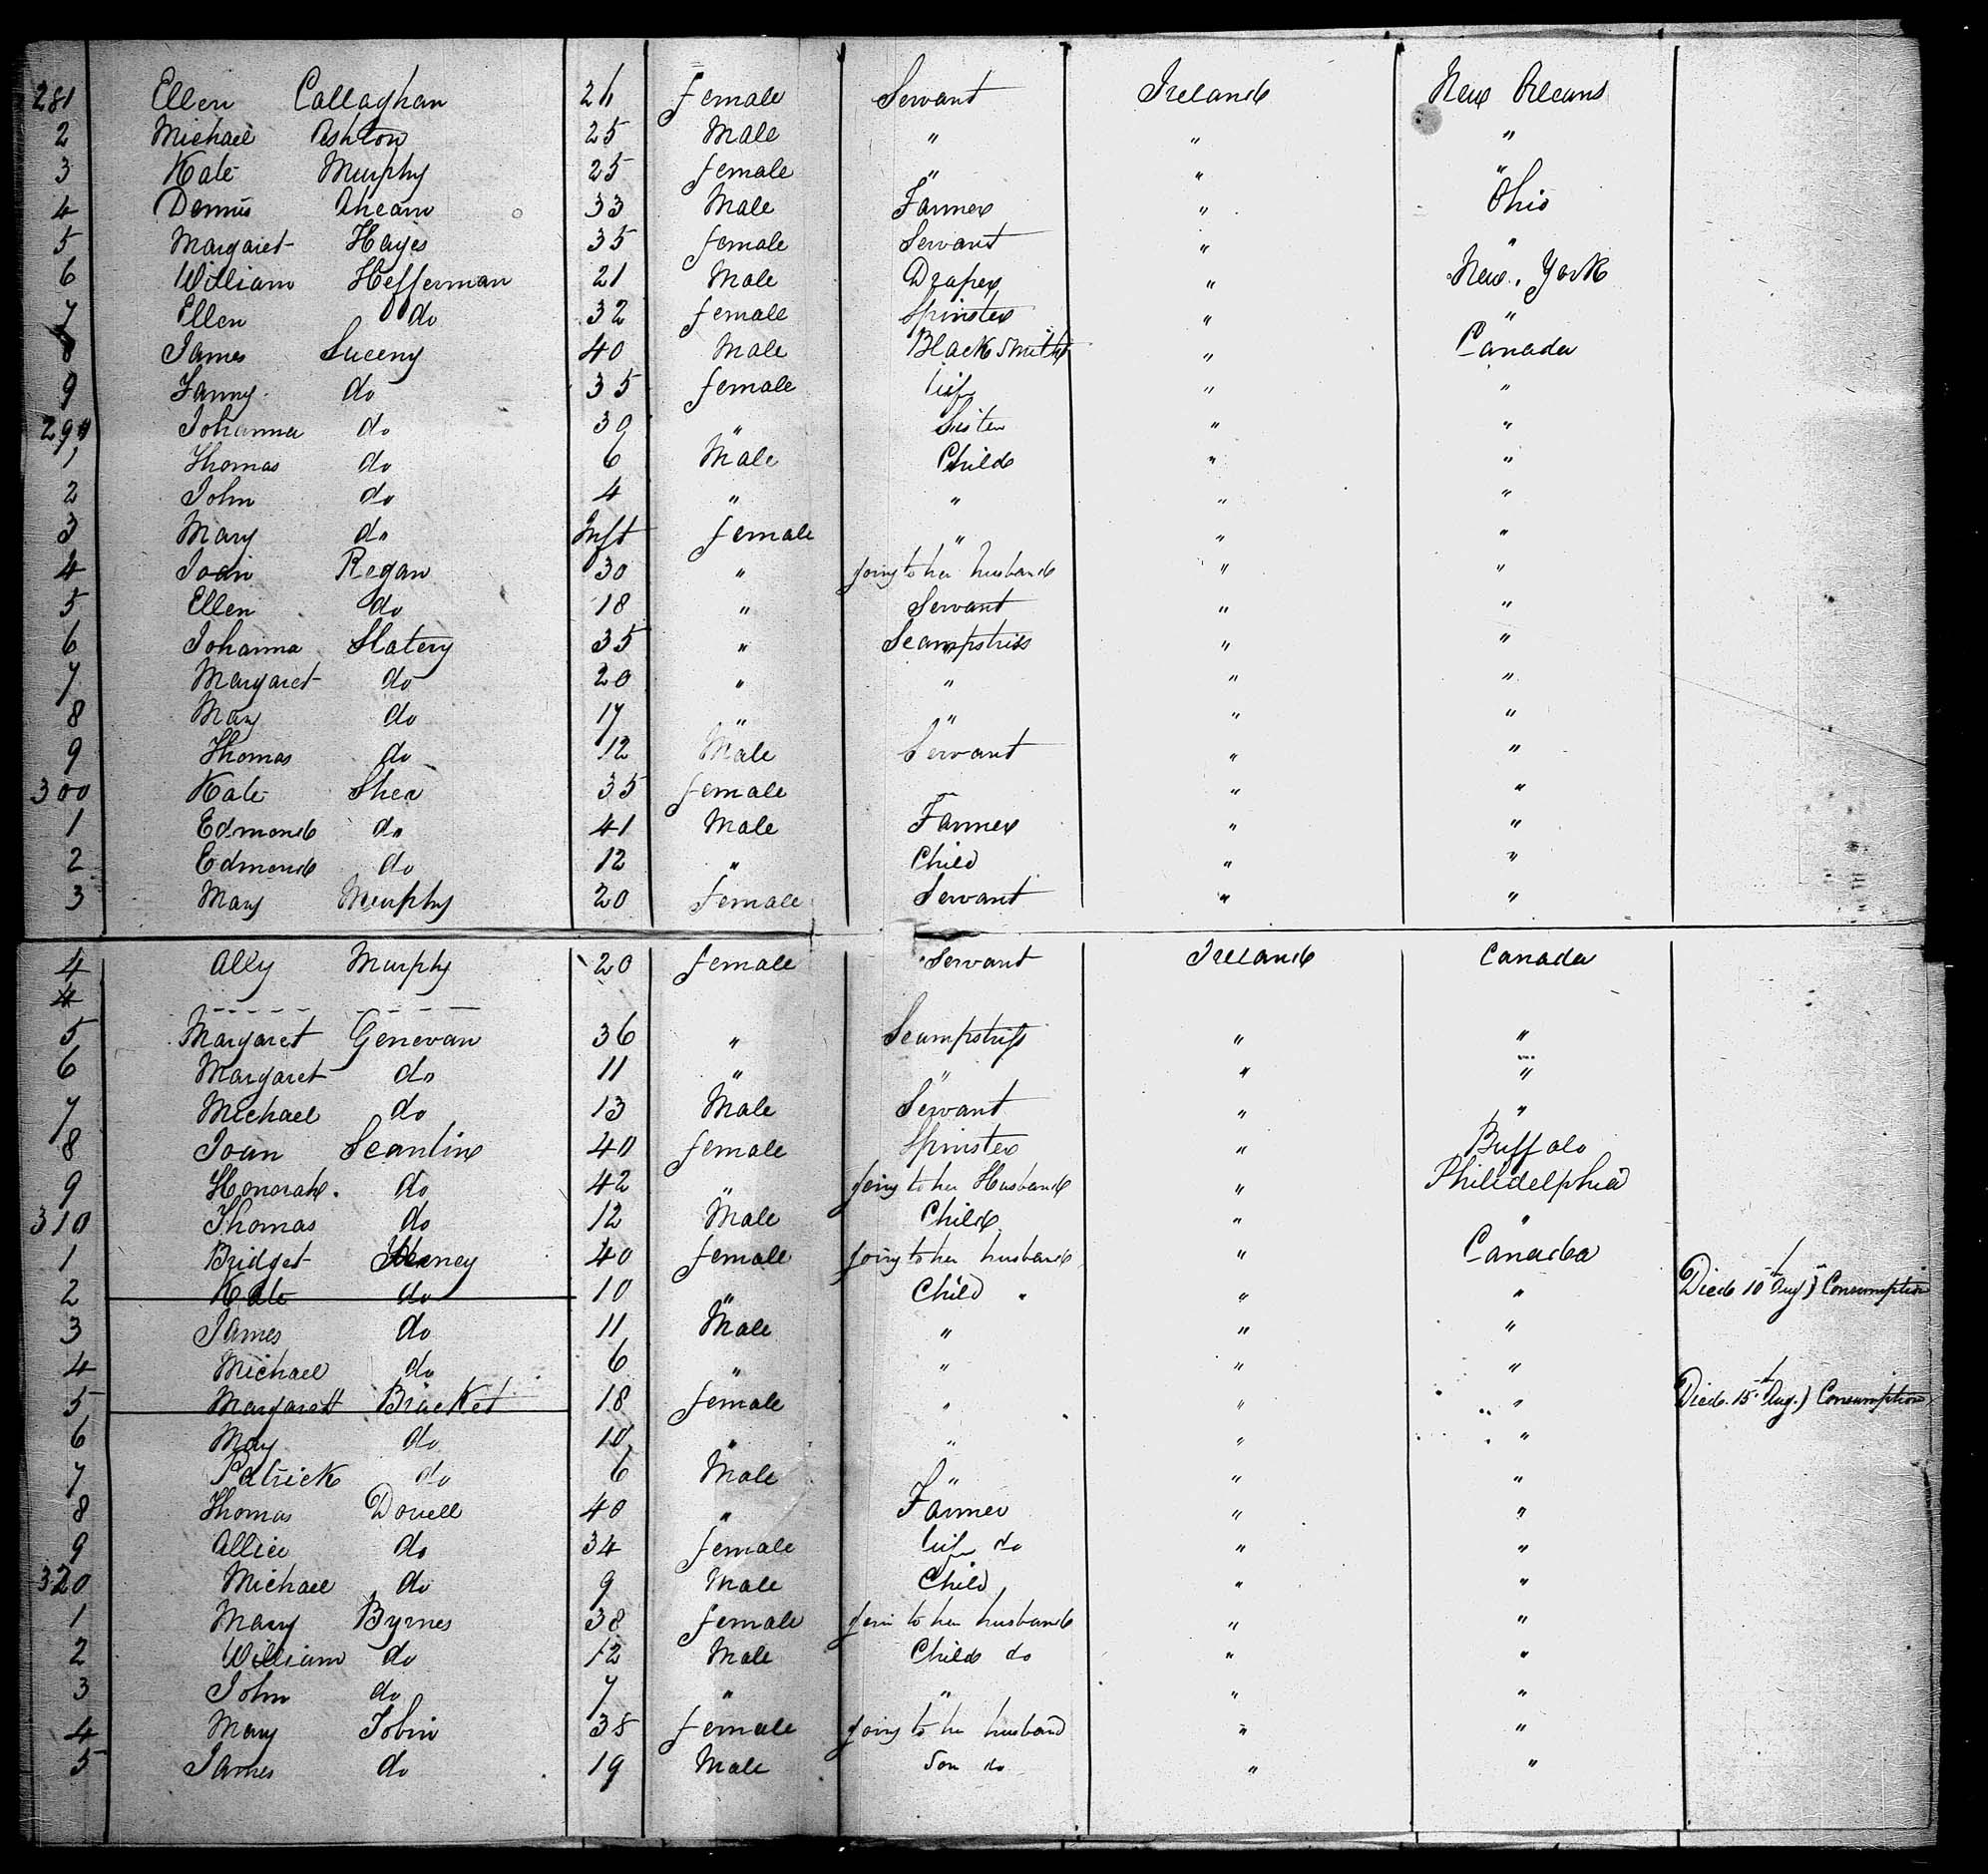 281 Ellen Callaghan 26 female Servant Ireland New Orleans
2 Michael Ashton 25 Male " " "
3 Kate Murphy 25 female " " "
4 Dennis Ahearn 33 Male Farmer " Ohio
5 Margaret Hayes 35 female Servant " "
6 William Hefferman 21 Male Draper " New York
7 Ellen do 32 female Spinster " "
8 James Sweeny 40 Male Black Smith " Canada
9 Fanny do 35 female wife " "
290 Johanna do 30 " Sister " "
1 Thomas do 6 Male Child " "
2 John do 4 " " " "
3 Mary do Inft female " " "
4 Joan Regan 30 " going to her husband " "
5 Ellen do 18 " Servant " "
6 Johanna Slatery 35 " Seampstriss " "
7 Margaret do 20 " " " "
8 Mary do 17 " " " "
9 Thomas do 12 Male Servant " "
300 Kate Shea 35 female " "
1 Edmond do 41 Male Farmer " "
2 Edmond do 12 " Child " "
3 Mary Murphy 20 female Servant " "
4 Ally Murphy 20 female Servant Ireland Canada
4
5 Margaret Genevan 36 " Seampstriss " "
6 Margaret do 11 " " " "
7 Michael do 13 Male Servant " "
8 Joan Scanlin 40 female Spinster " Buffalo
9 Honorah do 42 " going to her Husband " Philidelphia
310 Thomas do 12 Male Child " "
1 Bridget 40 female going to her husband " Canada
2 Kate do 10 " Child " " " Died 10th Aug) Consumption
3 James do 11 Male " " "
4 Michael do 6 " " " "
5 Margaret Bracket 18 female " " " Died 15th Aug.) Consumption
6 May do 10 " " " "
7 Patrick do 6 Male " " "
8 Thomas Dovell 40 " Farmer " "
9 Allice do 34 female wife do " "
320 Michael do 9 Male Child " "
1 Mary Byrnes 38 female goin to her husband " "
2 William do 12 Male Child do " "
3 John do 7 " " " "
4 Mary Tobin 38 female going to her husband " "
5 James do 19 Male Son do " "